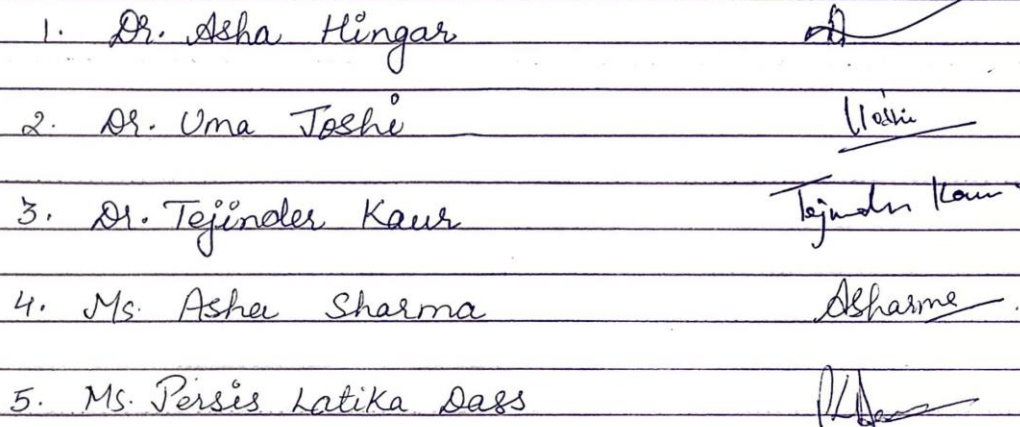 1. Dr. Asha Hingar
2. Dr. Uma Joshi UJoshi
3. Dr. Tejinder Kaur Tejinder Kaur
4. Ms. Asha Sharma ASharma
5. Ms. Persis Latika Dass